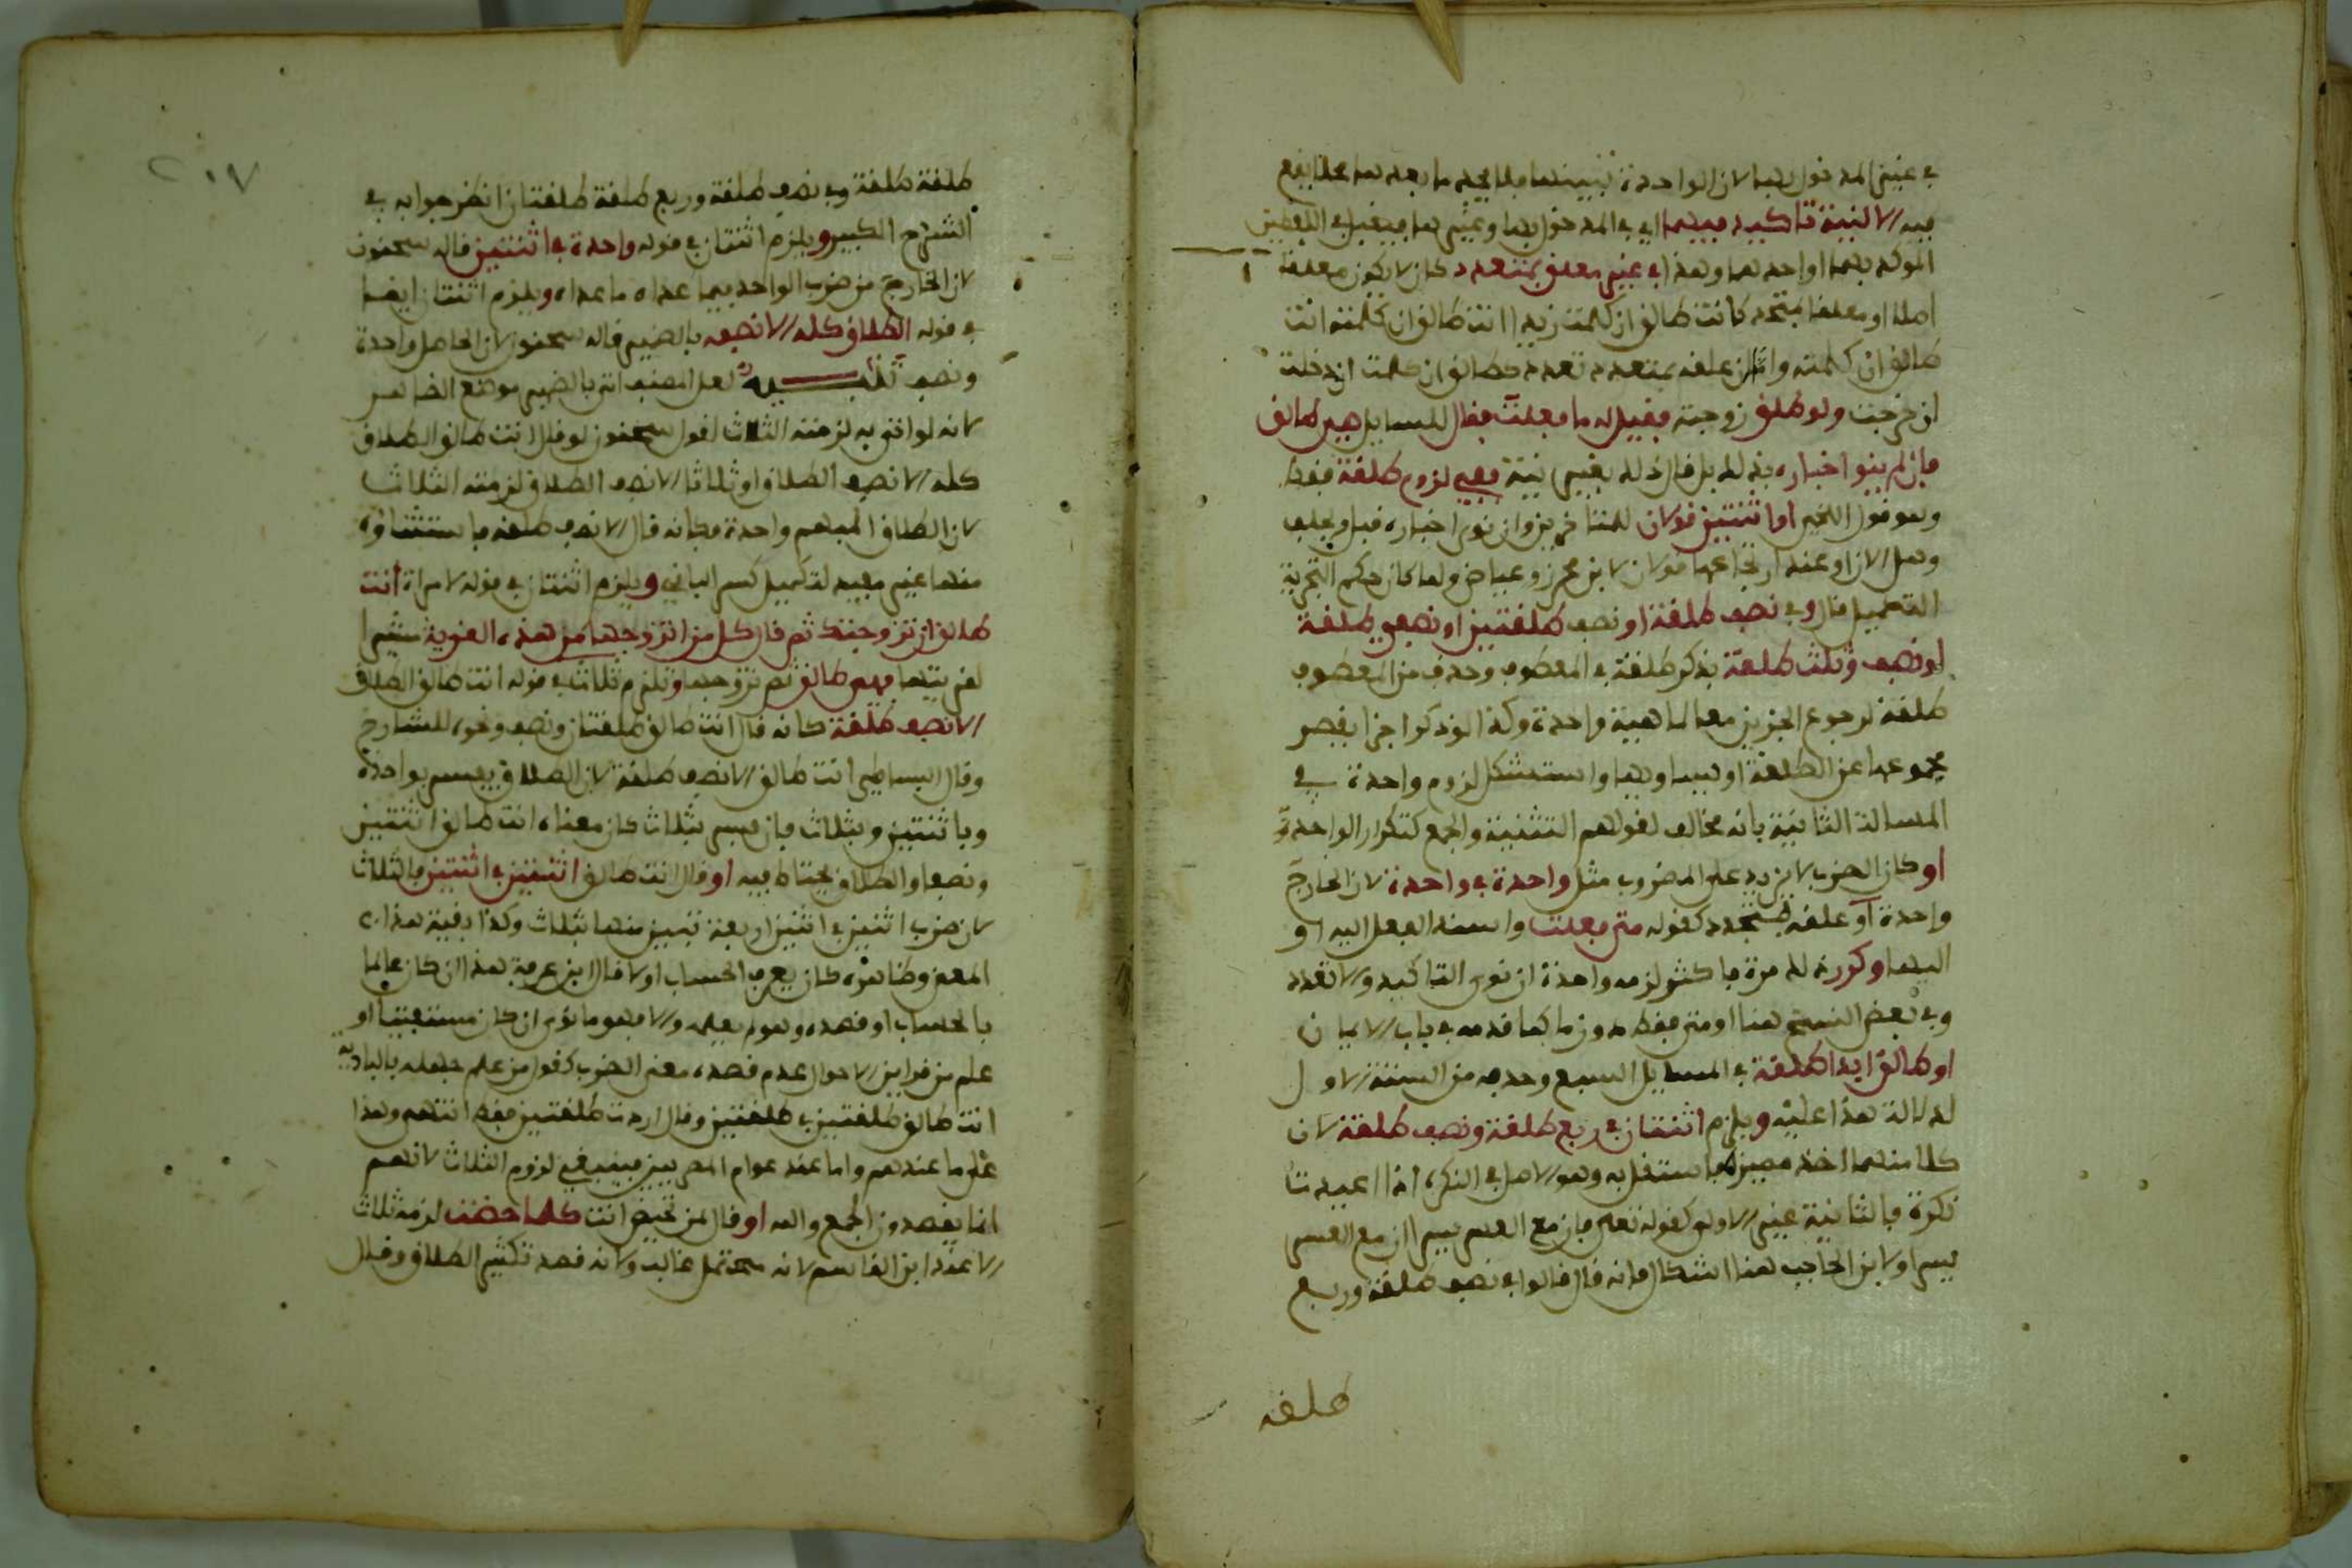 في غير المدخول بها لان الواحدة تبينها فلا يجد ما بعدها محلا يقع
فيه الا لنية تاكيد فيهما اي في المدخول بها وغيرها فيقبل في اللفظين
الموكد بهما او احدهما وهذا في غير معلق بمتعدد كان لا يكون معلقا
اصلا او معلقا بمتحد كانت طالق ان كلمت زيدا انت طالق ان كلمته انت
طالق ان كلمته وان علقه بمتعدد تعدد كطالق ان كلمت ان دخلت
ان خرجت ولو طلق زوجته فقيل له ما فعلت فقال للسايل هي طالق
فان لم ينو اخباره بذلك بل قال ذلك بغير نية ففي لزوم طلقة فقط
وهو قول اللخمي او اثنتين قولان للمتاخرين وان نوى اخباره قبل ويحلف
وهل الان او عند ارتجاعها قولان لابن محرز وعياض ولما كان حكم التجزية
التكميل قال وفي نصف طلقة او نصف طلقتين او نصفي طلقة
او نصف وثلث طلقة بذكر طلقة في المعطوف وحذف من المعطوف
طلقة لرجوع الجزءين معا لماهية واحدة وكذا لو ذكر اجزا يقصر
مجموعها عن الطلقة او يساويها واستشكل لزوم واحدة في
المسالة الثانية بانه مخالف لقولهم التثنية والجمع كتكرار الواحد
او كان الضرب لا يزيد على المضروب مثل واحدة في واحدة لان الخارج
واحدة او علقه بمتجدد كقوله متى فعلت واسند الفعل اليه او
اليها وكرر ذلك مرة فاكثر لزمه واحدة ان نوى التاكيد والا تعدد
وفي بعض النسخ هنا او متى فقط دون ما كما قدمه في باب الايمان
او طالق ابدا طلقة في المسايل السبع وحذفه من الستة الاول
لدلالة هذا عليه ويلزم اثنتان في ربع طلقة ونصف طلقة لان
كلا منهما اخذ مميزه فاستقل به وهو الاصل في النكرة اذا اعيدت
نكرة فالثانية غير الاولى كقوله تعلى فان مع العسر يسرا ان مع العسر
يسرا ولابن الحاجب هنا اشكال فانه قال قالوا في نصف طلقة وربع
طلقة
٢٠٧
طلقة طلقة وفي نصف طلقة وربع طلقة طلقتان انظر جوابه في
الشرح الكبير ويلزم اثنتان في قوله واحدة في اثنتين قاله سحنون
لان الخارج من ضرب الواحد فيما عداه ما عداه ويلزم اثنتان ايضا
في قوله الطلاق كله الا نصفه بالضمير قاله سحنون لان الحاصل واحدة
ونصف تنبيه لعل المصنف اتى بالضمير موضع الظاهر
لانه لو اتى به لزمته الثلاث لقول سحنون لو قال انت طالق الطلاق
كله الا نصف الطلاق او ثلاثا الا نصف الطلاق لزمته الثلاث
لان الطلاق المبهم واحدة فكانه قال الا نصف طلقة فاستثناؤه
منها غير مفيد لتكميل كسر الباقي ويلزم اثنتان في قوله لامراة انت
طالق ان تزوجتك ثم قال كل من اتزوجها من هذه القرية مشيرا
لقريتها فهي طالق ثم تزوجها وتلزم ثلاث في قوله انت طالق الطلاق
الا نصف طلقة كانه قال انت طالق طلقتان ونصف ونحوه للشارح
وقال البساطي انت طالق الا نصف طلقة لان الطلاق يفسر بواحدة
وباثنتين وبثلاث فان فسر بثلاث كان معناه انت طالق اثنتين
ونصفا والطلاق يحتاط فيه او قال انت طالق اثنتين في اثنتين فالثلاث
لان ضرب اثنين في اثنين اربعة تبين منها بثلاث وكذا بقية هذا
المعنى وظاهره كان يعرف الحساب او لا قال ابن عرفة هذا ان كان عالما
بالحساب او قصده وهو لم يعلمه والا فهو ما نوى ان كان مستفتيا او
علم من قراين الاحوال عدم قصده معنى الضرب كقول من علم جهله بالبادية
انت طالق طلقتين في طلقتين وقال اردت طلقتين فقط انتهى وهذا
على ما عندهم واما عند عوام المصريين فينبغي لزوم الثلاث لانهم
انما يقصدون الجمع والله او قال لمن تحيض انت كلما حضت لزمه ثلاث
لا عند ابن القاسم لانه محتمل غالب ولانه قصد تكثير الطلاق وقال